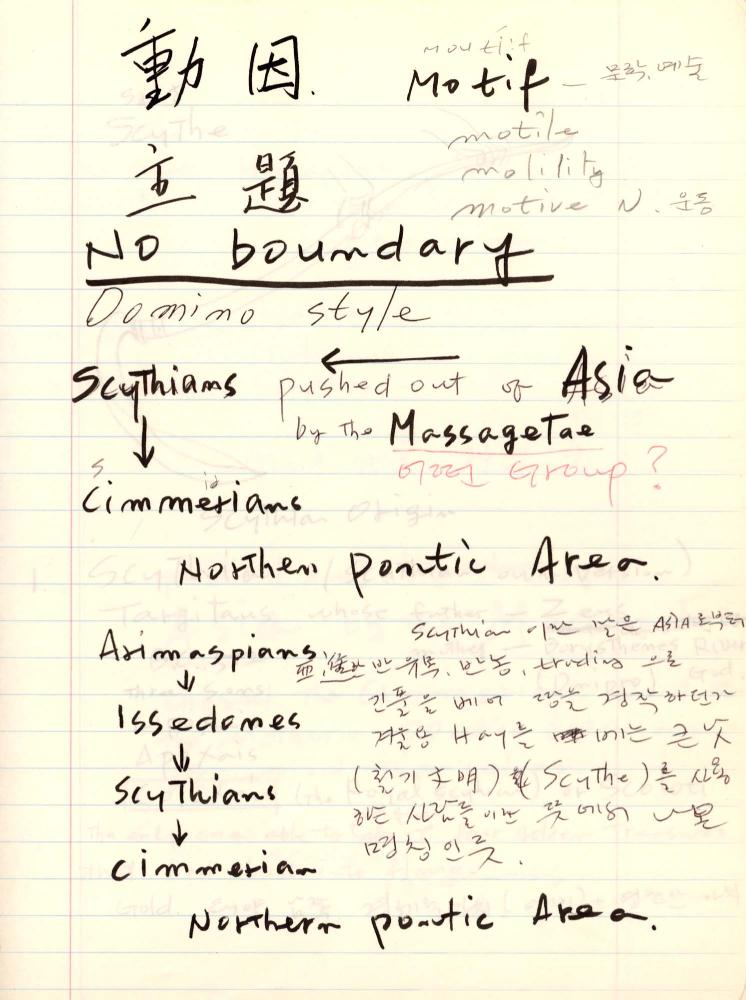 動因. Motif – 문학, 예술
motile
主題 motility
motive N. 운동
NO boundary
Domino style
Scythians pushed out of Asia
by the Massagetae
어떤 Group?
S
Cimmerians
Northern pontic Area.
Arimaspians
Issedones
Scythians
Cimmerian
Scythian 이란 말은 ASIA로부터
반 유목, 반농, trading 으로
긴 풀을 베어 땅을 경작하던가
겨울용 Hay를 베는 큰 낫
(철기문명) (Scythe)를 사용
하는 사람들이란 뜻에서 나온
명칭인듯.
Northern pontic Area.